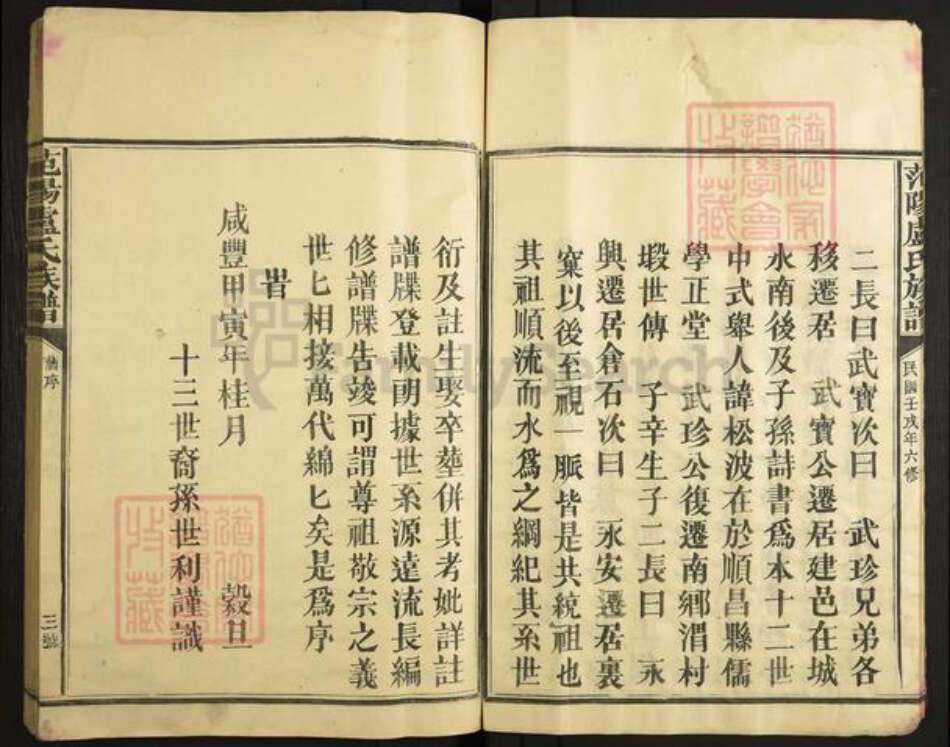 范陽盧氏族譜
民國壬戌年六修
二長曰武寶次曰 武珍兄弟各
移遷居 武寶公遷居建邑在城
永南後及子孫詩書為本十二世
中式舉人諱松波在於順昌縣儒
學正堂 武珍公復遷南鄉渭村
塅世傳 子辛生子二長曰 永
興遷居倉石次曰 永安遷居裏
窠以後至視一脈皆是共統祖也
其祖順流而水為之綱紀其系世
衍及註生娶卒塟併其考妣詳註
譜牒登載朗據世系源遠流長編
修譜牒告竣可謂尊祖敬宗之義
世匕相接萬代綿匕矣是為序
旹
咸豐甲寅年桂月 穀旦
十三世裔孫世利謹識
范陽盧氏族譜
舊序
三號
FamilySearch